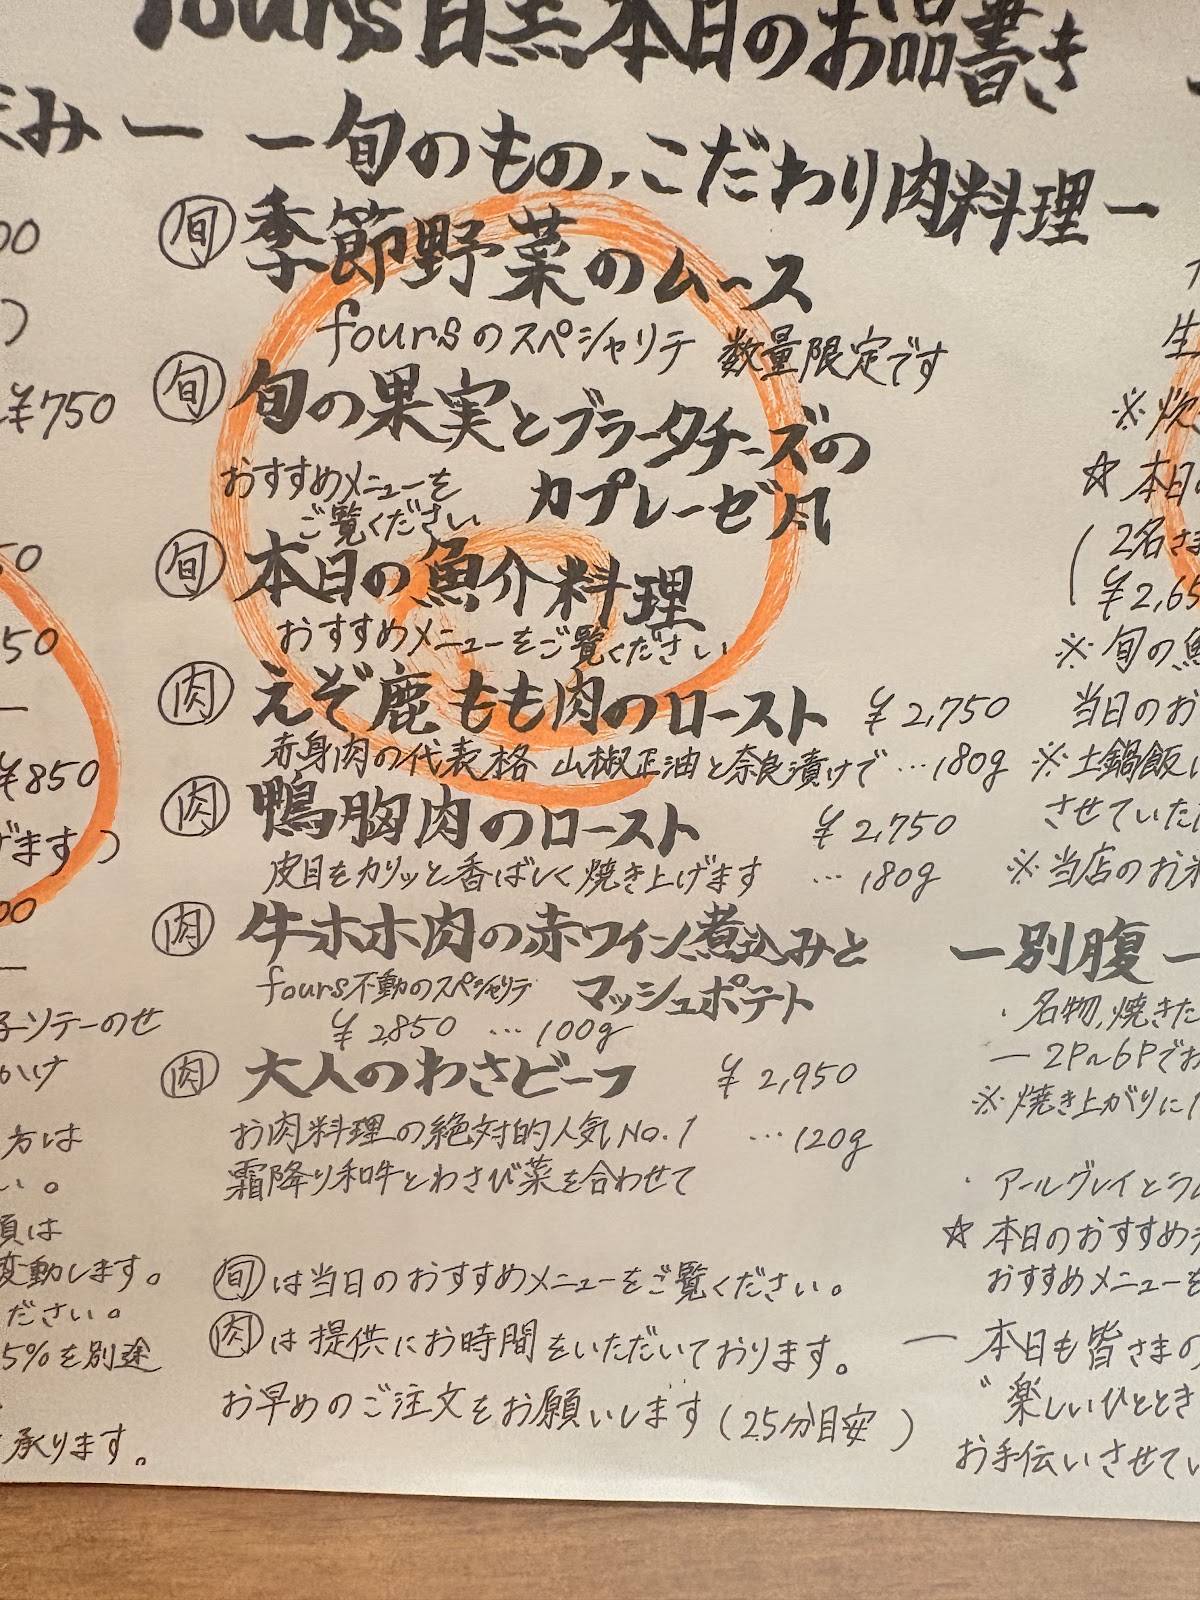 fours 目黒 本日のお品書き
み ー
ー 旬のもの、こだわり肉料理 ー
00
¥750
50
50
¥850
げます)
00
子ソテーのせ
かけ
方は
い。
頃は
変動します。
ださい。
5%を別途
承ります。
旬 季節野菜のムース
foursのスペシャリテ 数量限定です
旬 旬の果実とブラータチーズの
カプレーゼ風
おすすめメニューを
ご覧ください
旬 本日の魚介料理
おすすめメニューをご覧ください
肉 えぞ鹿もも肉のロースト ¥2,750
赤身肉の代表格 山椒正油と奈良漬けで …180g
肉 鴨胸肉のロースト ¥2,750
皮目をカリッと香ばしく焼き上げます …180g
肉 牛ホホ肉の赤ワイン煮込みと
fours不動のスペシャリテ マッシュポテト
¥2,850 …100g
肉 大人のわさビーフ ¥2,950
お肉料理の絶対的人気No.1 …120g
霜降り和牛とわさび菜を合わせて
旬は当日のおすすめメニューをご覧ください。
肉は提供にお時間をいただいております。
お早めのご注文をお願いします(25分目安)
生
※炊
☆本日の
(2名さま
¥2,65
※旬の魚
当日のお
※土鍋飯
させていた
※当店のお米
ー別腹ー
・名物,焼きた
ー2P〜6Pでお
※焼き上がりに1
・アールグレイとラム
☆本日のおすすめデ
おすすめメニューを
ー 本日も皆さまの
"楽しいひととき
お手伝いさせてい